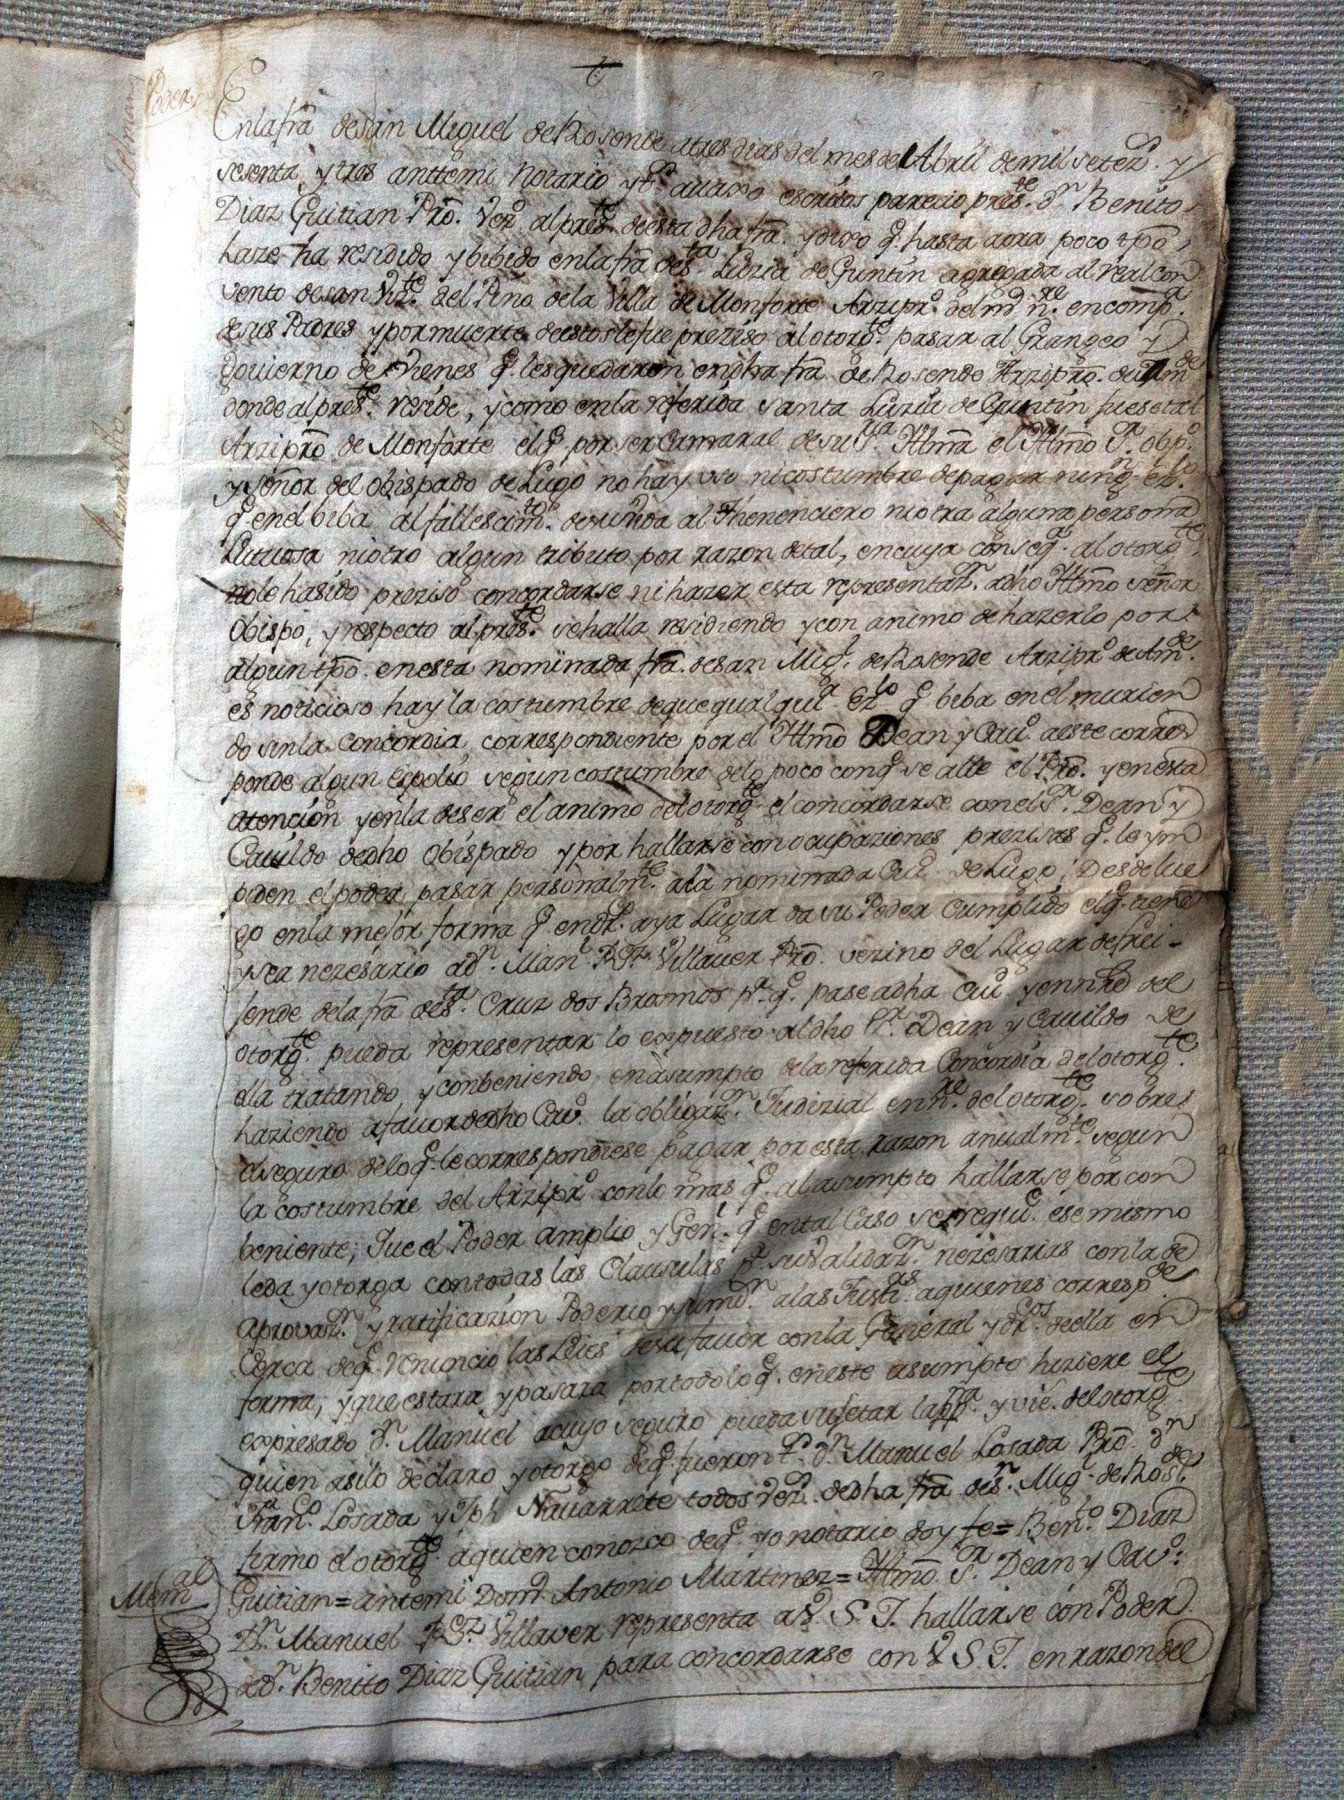 Poder
Enlafra desan Miguel de Rosende atres dias del mes de Abril demil setezs. y
sesenta y tres anttemi Notario yts. avaxo escritos parecio preste. dn Benito
Diaz Guitian Pro. Vezo. alpreste. deesta dha fra. ydixo q. hasta aora poco tpo
haze ha residido y bibido enlafra desta. Luzia de Guntin agregada al real con
vento desan Vizte. del Pino dela Villa de Monforte Arzipro. del encompa.
desus Padres ypormuerte deestos lefue preziso alotorgte. pasar al Grangeo y
govierno de vienes q. lesquedaron endha fra. de Rosende Arzipro. de Amde
donde alpreste. reside, ycomo enla referida santa Luzia de Guntin fuese tal
Arzipro de Monforte elq. por ser Camaral desu Sa. Illma el Illmo Sr. obpo
y señor del obispado de Lugo no hay uso nicostumbre depagar ningn. ezlo.
q. enel biba alfallescimto. desunda al Thenenciero niotra alguna persona
Lutuosa niotro algun tributo por razon detal, encuya conseqa. alotorgte.
nole hasido preziso concordarse ni hazer esta representazn. adho Illmo señor
Obispo, y respecto alpreste. sehalla residiendo ycon animo dehazerlo por
algun tpo. enesta nominada fra. desan Migl. deRosende Arzipro de Amde.
es noticioso hay la costumbre dequequalquir ezlo q. biba en el murien
do sinla concordia correspondiente por el Illmo Dean y Cavo. aeste corres
ponde algun Espolio segun costumbre delo poco conq. se alle el Pro. yenesta
atencion yenla deser el animo delotorgte. el concordarse con el Sr. Dean y
Cavildo dedho Obispado y por hallarse con ocupaziones prezisas q. le ym
piden el poder pasar personalmte. ala nominada Ciud. de Lugo; Desdelue
go enla mejor forma q. endro. aya Lugar da su Poder cumplido elq. tiene
y sea nezesario adn. Manl. Rz. Villaver Pro. vezino del Lugar defrei-
sende dela fra desta. Cruz dos Bramos pa. q. pase adha Ciud. yennre del
otorgte. pueda representar lo expuesto aldho Sr. Dean y Cavildo de
ella tratando, yconbeniendo enasumpto dela referida Concordia delotorgte.
haziendo afavor dedho Cavo. la obligazn. Judizial enne. delotorgte. sobre
elseguro delo q. le correspondiese pagar por esta razon anualmte. segun
la costumbre del Arzipro conlo mas q. alasumpto hallarse por con
beniente, Que el Poder amplio y Genl. q. ental Caso serequie. ese mismo
leda yotorga contodas las Clausulas pa. su validazn. nezesarias conla de
aprovazn. y ratificazion Poderio ysumisn. alas Justas. aquienes correspde
Cerca deq. renuncio las Leies desu favor conla General ydros. deella en
forma, yque estara ypasara portodolo q. eneste asumpto hiziere el
expresado dn. Manuel acuyo seguro pueda sujetar lappa. y vie. delotorgte
quien asilo declaro yotorgo deq. fueron ts. dn. Manuel Losada Pro. dn
Franco. Losada y Jph Navarrete todos vezs. dedha fra desn. Migl. de Rosde.
firmo elotorgte. aquien conozco deq. yo notario doy fe= Bento. Diaz
Guitian= antemi Domo. Antonio Martinez= Illmo. Sr. Dean y Cavo.
Memal
Dn. Manuel Rz. Villaver representa a V. S. I. hallarse con Poder
dedn. Benito Diaz Guitian para concordarse con V. S. I. enrazondel